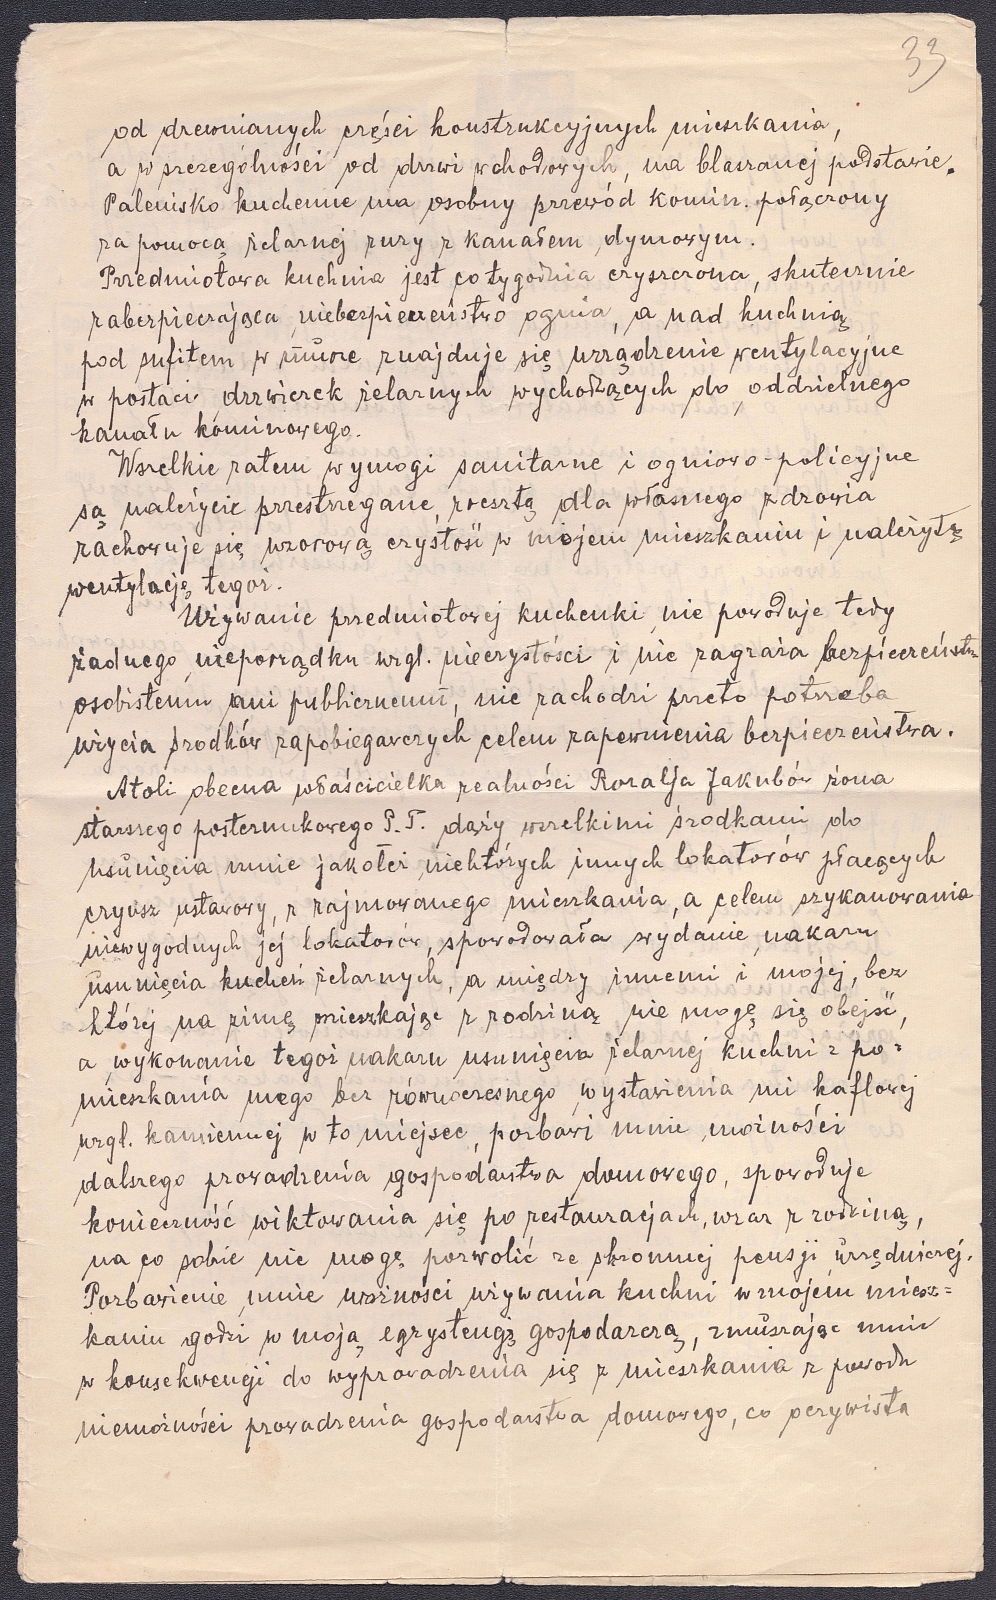 33
od drewnianych części konstrukcyjnych mieszkania,
a w szczególności od drzwi wchodowych, na blaszanej podstawie.
Palenisko kuchenne ma osobny przewód komin. połączony
za pomocą żelaznej rury z kanałem dymowym.
Przedmiotowa kuchnia jest co tygodnia czyszczona, skutecznie
zabezpieczająca niebezpieczeństwo ognia, a nad kuchnią
pod sufitem w murze znajduje się urządzenie wentylacyjne
w postaci drzwiczek żelaznych wychodzących do oddzielnego
kanału kominowego.
Wszelkie zatem wymogi sanitarne i ogniowo-policyjne
są należycie przestrzegane, zresztą dla własnego zdrowia
zachowuje się wzorową czystość w mojem mieszkaniu i należytą
wentylację tegoż.
Używanie przedmiotowej kuchenki nie powoduje tedy
żadnego nieporządku wzgl. nieczystości i nie zagraża bezpieczeństwu
osobistemu ani publicznemu, nie zachodzi przeto potrzeba
użycia środków zapobiegawczych celem zapewnienia bezpieczeństwa.
Atoli obecna właścicielka realności Rozalja Jakubów żona
starszego posterunkowego P.P. dąży wszelkimi środkami do
usunięcia mnie jakoteż niektórych innych lokatorów płacących
czynsz ustawowy, z zajmowanego mieszkania, a celem szykanowania
niewygodnych jej lokatorów, spowodowała wydanie nakazu
usunięcia kucheń żelaznych, a między innemi i mojej, bez
której na zimę mieszkając z rodziną nie mogę się obejść,
a wykonanie tegoż nakazu usunięcia żelaznej kuchni z po=
mieszkania mego bez równoczesnego wystawienia mi kaflowej
wzgl. kamiennej w to miejsce, pozbawi mnie możności
dalszego prowadzenia gospodarstwa domowego, spowoduje
konieczność wiktowania się po restauracjach, wraz z rodziną,
na co sobie nie mogę pozwolić ze skromnej pensji urzędniczej.
Pozbawienie mnie możności używania kuchni w mojem miesz=
kaniu godzi w moją egzystencję gospodarczą, zmuszając mnie
w konsekwencji do wyprowadzenia się z mieszkania z powodu
niemożności prowadzenia gospodarstwa domowego, co oczywista